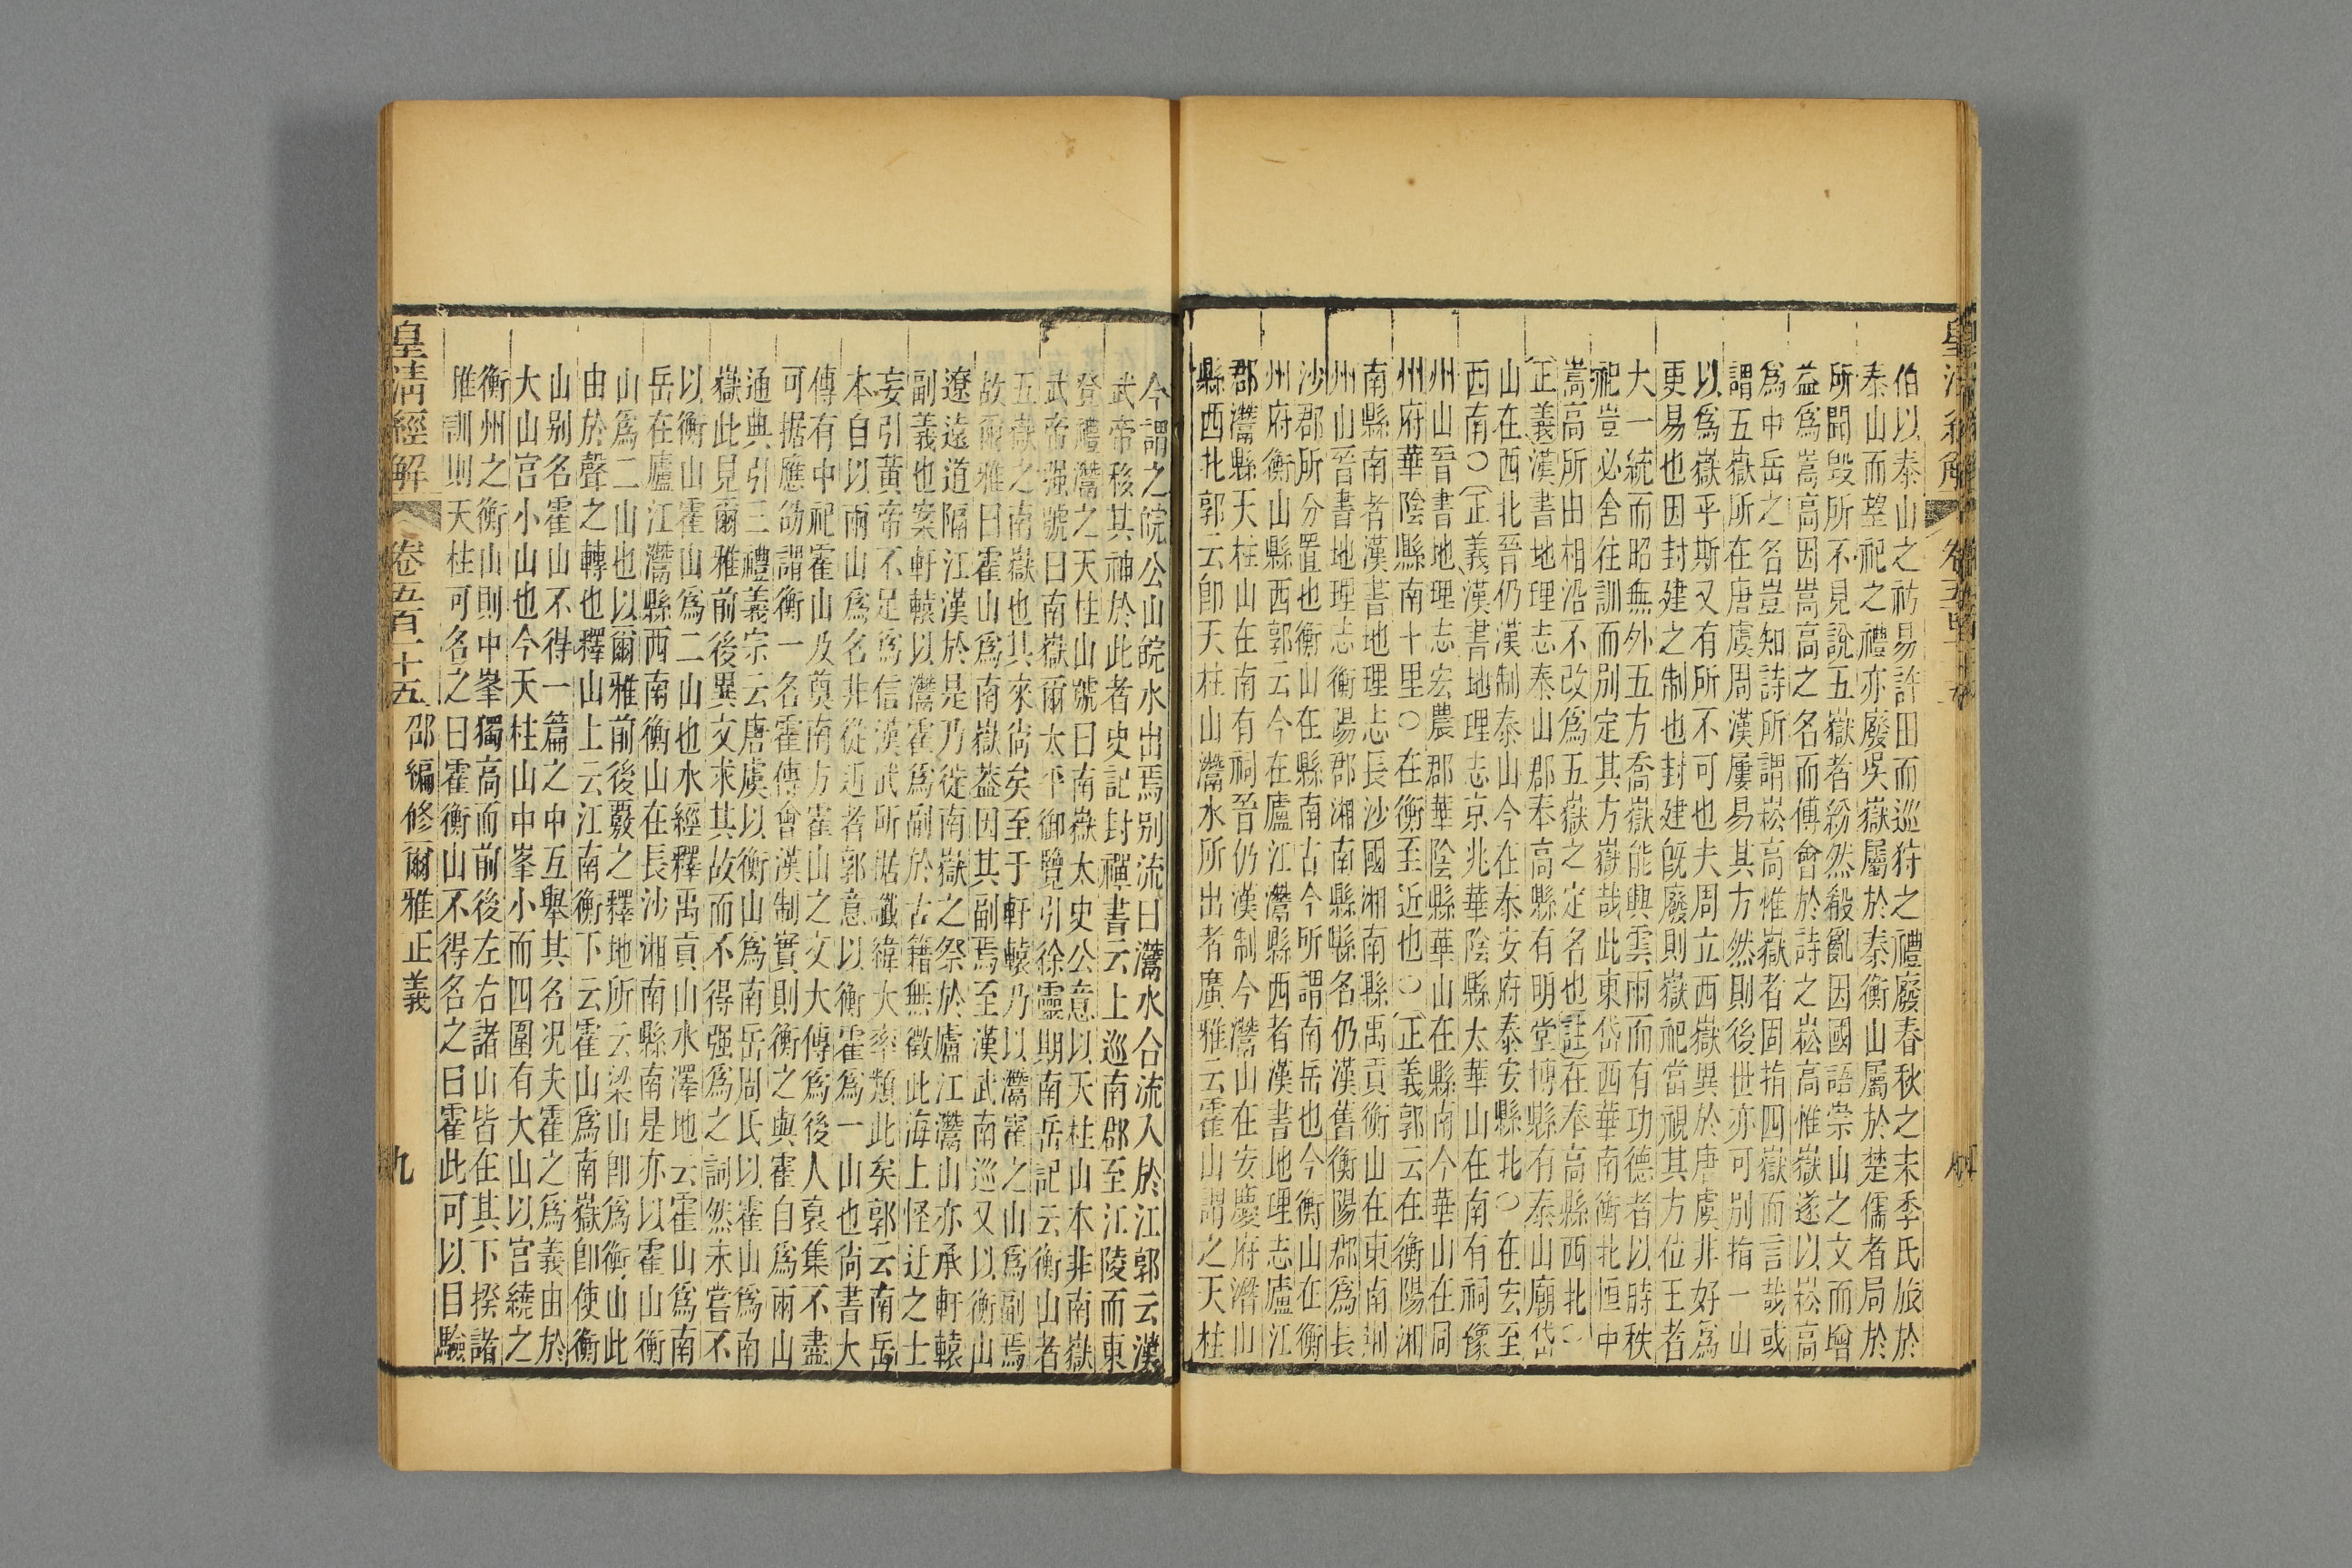 伯以泰山之祊易許田而巡狩之禮廢春秋之末季氏旅於
泰山而望祀之禮亦廢吳嶽屬於泰衡山屬於楚儒者局於
所聞毀所不見說五嶽者紛然殽亂因國語崇山之文而增
益爲嵩高因嵩高之名而傅會於詩之崧高惟嶽遂以崧高
爲中岳之名豈知詩所謂崧高惟嶽者固指四嶽而言哉或
謂五嶽所在唐虞周漢屢易其方然則後世亦可別指一山
以爲嶽乎斯又有所不可也夫周立西嶽異於唐虞非好爲
更易也因封建之制也封建旣廢則嶽祀當視其方位王者
大一統而昭無外五方喬嶽能興雲雨而有功德者以時秩
祀豈必舍往訓而别定其方嶽哉此東岱西華南衡北恒中
嵩高所由相沿不改爲五嶽之定名也註在奉高縣西北○
正義漢書地理志泰山郡奉高縣有明堂博縣有泰山廟岱
山在西北晉仍漢制泰山今在泰安府泰安縣北○在宏至
西南○正義漢書地理志京兆華陰縣太華山在南有祠豫
州山晉書地理志宏農郡華陰縣華山在縣南今華山在同
州府華陰縣南十里○在衡至近也○正義郭云在衡陽湘
南縣南者漢書地理志長沙國湘南縣禹貢衡山在東南荆
州山晉書地理志衡陽郡湘南縣縣名仍漢舊衡陽郡爲長
沙郡所分置也衡山在縣南古今所謂南岳也今衡山在衡
州府衡山縣西郭云今在廬江灊縣西者漢書地理志廬江
郡灊縣天柱山在南有祠晉仍漢制今灊山在安慶府潛山
縣西北郭云卽天柱山灊水所出者廣雅云霍山謂之天柱
今謂之皖公山皖水出焉别流曰灊水合流入於江郭云漢
武帝移其神於此者史記封禪書云上巡南郡至江陵而東
登禮灊之天柱山號曰南嶽太史公意以天柱山本非南嶽
武帝强號曰南嶽爾太平御覽引徐靈期南岳記云衡山者
五嶽之南嶽也其來尙矣至于軒轅乃以灊霍之山爲副焉
故爾雅曰霍山爲南嶽葢因其副焉至漢武南巡又以衡山
遼遠道隔江漢於是乃徙南嶽之祭於廬江灊山亦承軒轅
副義也案軒轅以灊霍爲副於古籍無徵此海上怪迂之士
妄引黃帝不足爲信漢武所據讖緯大率類此矣郭云南岳
本自以兩山爲名非從近者郭意以衡霍爲一山也尙書大
傳有中祀霍山及奠南方霍山之文大傳爲後人裒集不盡
可据應劭謂衡一名霍傅會漢制實則衡之與霍自爲兩山
通典引三禮義宗云唐虞以衡山爲南岳周氏以霍山爲南
嶽此見爾雅前後異文求其故而不得强爲之詞然未嘗不
以衡山霍山爲二山也水經釋禹貢山水澤地云霍山爲南
岳在廬江灊縣西南衡山在長沙湘南縣南是亦以霍山衡
山爲二山也以爾雅前後覈之釋地所云梁山卽爲衡山此
由於聲之轉也釋山上云江南衡下云霍山爲南嶽卽使衡
山别名霍山不得一篇之中互舉其名况夫霍之爲義由於
大山宫小山也今天柱山中峯小而四圍有大山以宫繞之
衡州之衡山則中峯獨高而前後左右諸山皆在其下揆諸
雅訓則天柱可名之曰霍衡山不得名之曰霍此可以目驗
皇清經解　卷五百十五　邵編修爾雅正義　九